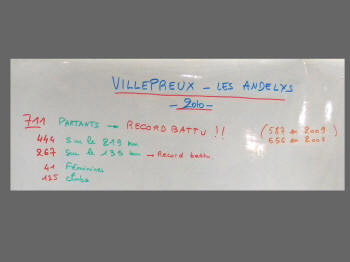 VILLEPREUX - LES ANDELYS
- 2010 -
711 PARTANTS → RECORD BATTU !! (587 en 2009)
444 sur le 219 km 656 en 2008
267 sur le 135 km → Record battu
41 Féminines
125 Clubs